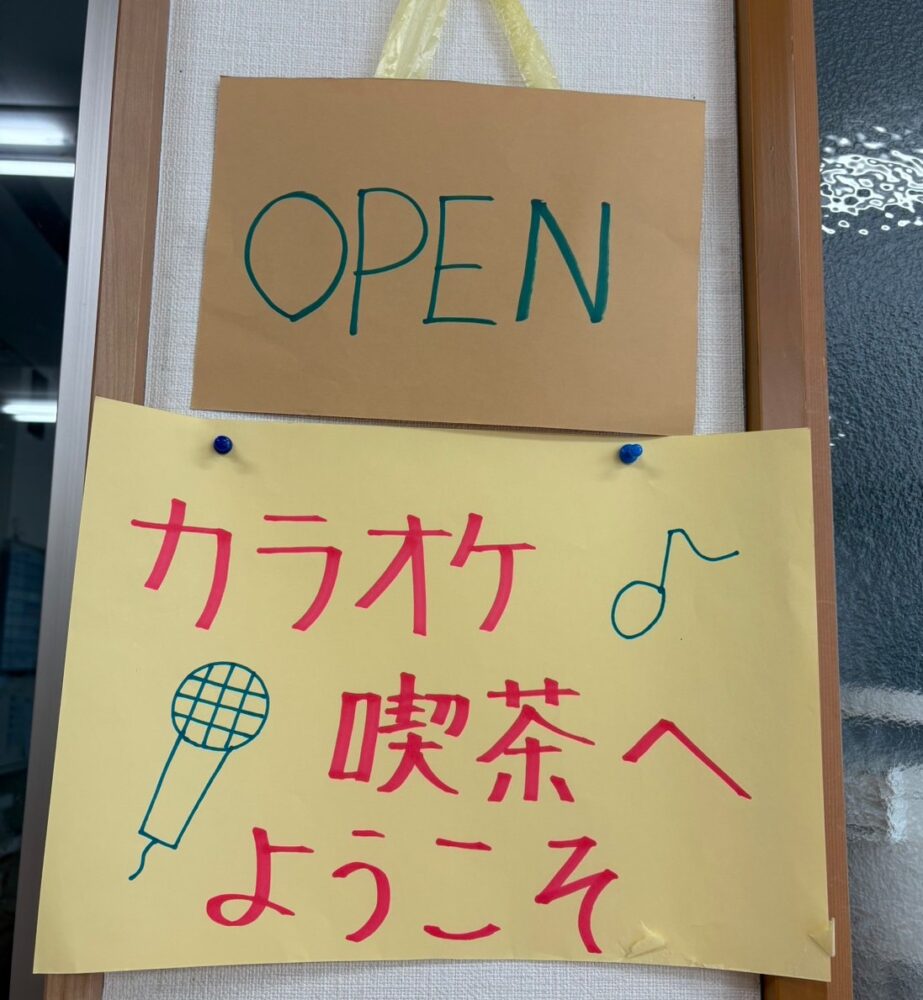 OPEN
カラオケ
喫茶へ
ようこそ